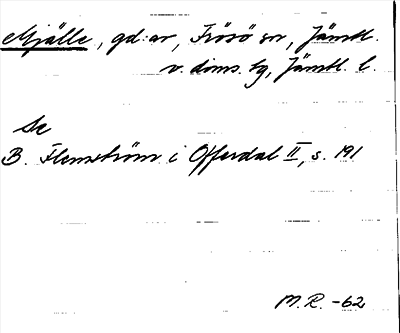 Mjälle, gd:ar, Frösö sn, Jämtl.
v. doms. tg, Jämtl. l.
Se
B. Flemström i Offerdal II, s. 191
M.R. -62